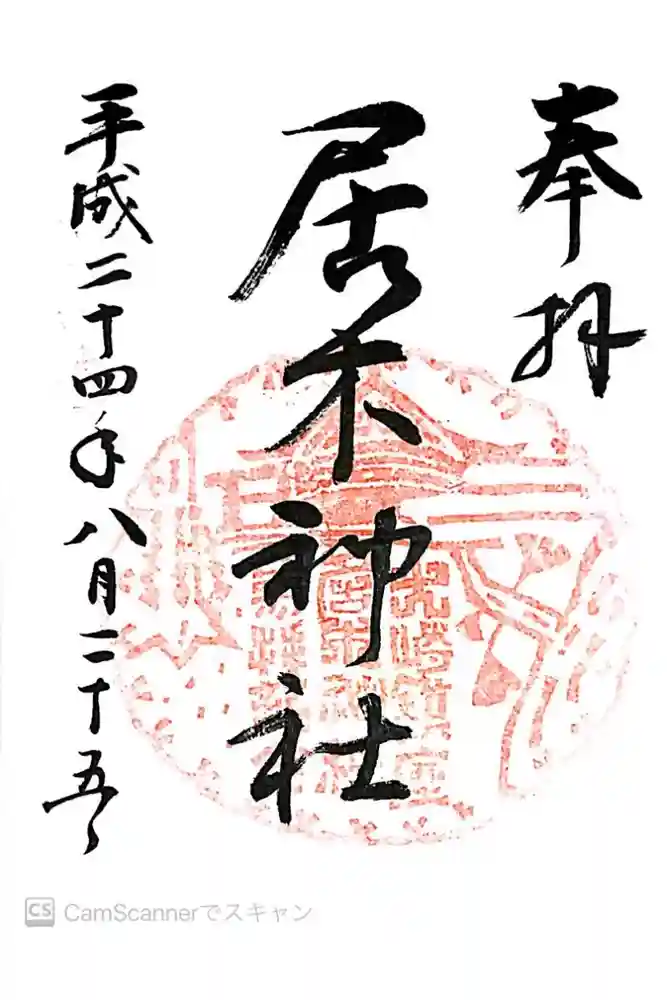 奉拝
居木神社
平成二十四年八月二十五日
CS CamScannerでスキャン